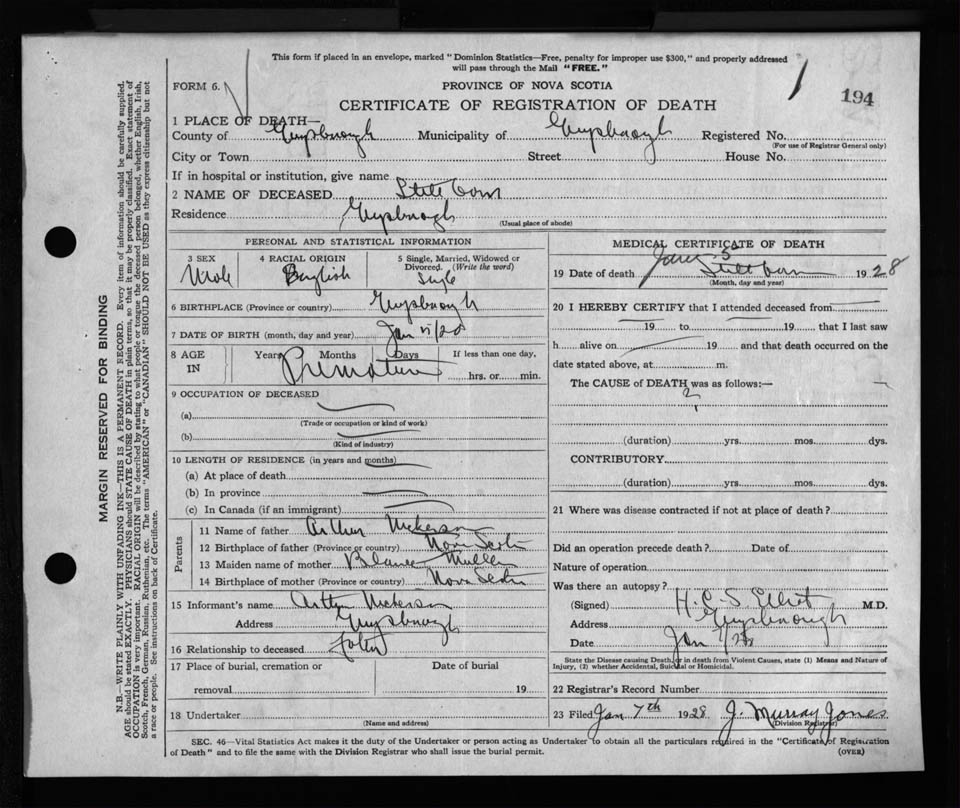 This form if placed in an envelope, marked "Dominion Statistics—Free, penalty for improper use $300," and properly addressed
will pass through the Mail "FREE."
FORM 6.
PROVINCE OF NOVA SCOTIA
1
194
CERTIFICATE OF REGISTRATION OF DEATH
1 PLACE OF DEATH—
County of Guysborough Municipality of Guysborough Registered No.
(For use of Registrar General only)
City or Town Street House No.
If in hospital or institution, give name
2 NAME OF DECEASED Still born
Residence Guysborough
(Usual place of abode)
PERSONAL AND STATISTICAL INFORMATION
3 SEX
Male
4 RACIAL ORIGIN
English
5 Single, Married, Widowed or
Divorced. (Write the word)
Single
6 BIRTHPLACE (Province or country) Guysborough
7 DATE OF BIRTH (month, day and year) Jan
8 AGE
IN
Years Months Days
Premature
If less than one day,
hrs. or min.
9 OCCUPATION OF DECEASED
(a)
(Trade or occupation or kind of work)
(b)
(Kind of industry)
10 LENGTH OF RESIDENCE (in years and months)
(a) At place of death
(b) In province
(c) In Canada (if an immigrant)
Parents
11 Name of father Arthur Nickerson
12 Birthplace of father (Province or country) Nova Scotia
13 Maiden name of mother Blanch
14 Birthplace of mother (Province or country) Nova Scotia
15 Informant's name Arthur Nickerson
Address Guysborough
16 Relationship to deceased Father
17 Place of burial, cremation or
removal
Date of burial
19
18 Undertaker
(Name and address)
MEDICAL CERTIFICATE OF DEATH
19 Date of death Jany. 5 Still born 1928
(Month, day and year)
20 I HEREBY CERTIFY that I attended deceased from
19 to 19 that I last saw
h alive on 19 and that death occurred on the
date stated above, at m.
The CAUSE of DEATH was as follows:—
?
(duration) yrs. mos. dys.
CONTRIBUTORY
(duration) yrs. mos. dys.
21 Where was disease contracted if not at place of death?
Did an operation precede death? Date of
Nature of operation
Was there an autopsy?
(Signed) H.C.S. Elliot M.D.
Address Guysborough
Date Jan 7/28
State the Disease causing Death, or in death from Violent Causes, state (1) Means and Nature of
Injury, (2) whether Accidental, Suicidal or Homicidal.
22 Registrar's Record Number
23 Filed Jan 7th 1928 J. Murray Jones
(Division Registrar)
SEC. 46—Vital Statistics Act makes it the duty of the Undertaker or person acting as Undertaker to obtain all the particulars required in the "Certificate of Registration
of Death" and to file the same with the Division Registrar who shall issue the burial permit.
(OVER)
MARGIN RESERVED FOR BINDING
N.B.—WRITE PLAINLY WITH UNFADING INK—THIS IS A PERMANENT RECORD. Every item of information should be carefully supplied.
AGE should be stated EXACTLY. PHYSICIANS should STATE CAUSE OF DEATH in plain terms, so that it may be properly classified. Exact statement of
OCCUPATION is very important. RACIAL ORIGIN will be described by stating to what people or tongue the deceased person belonged, whether English, Irish,
Scotch, French, German, Russian, Ruthenian, etc. The terms "AMERICAN" or "CANADIAN" SHOULD NOT BE USED as they express citizenship but not
a race or people. See instructions on back of Certificate.